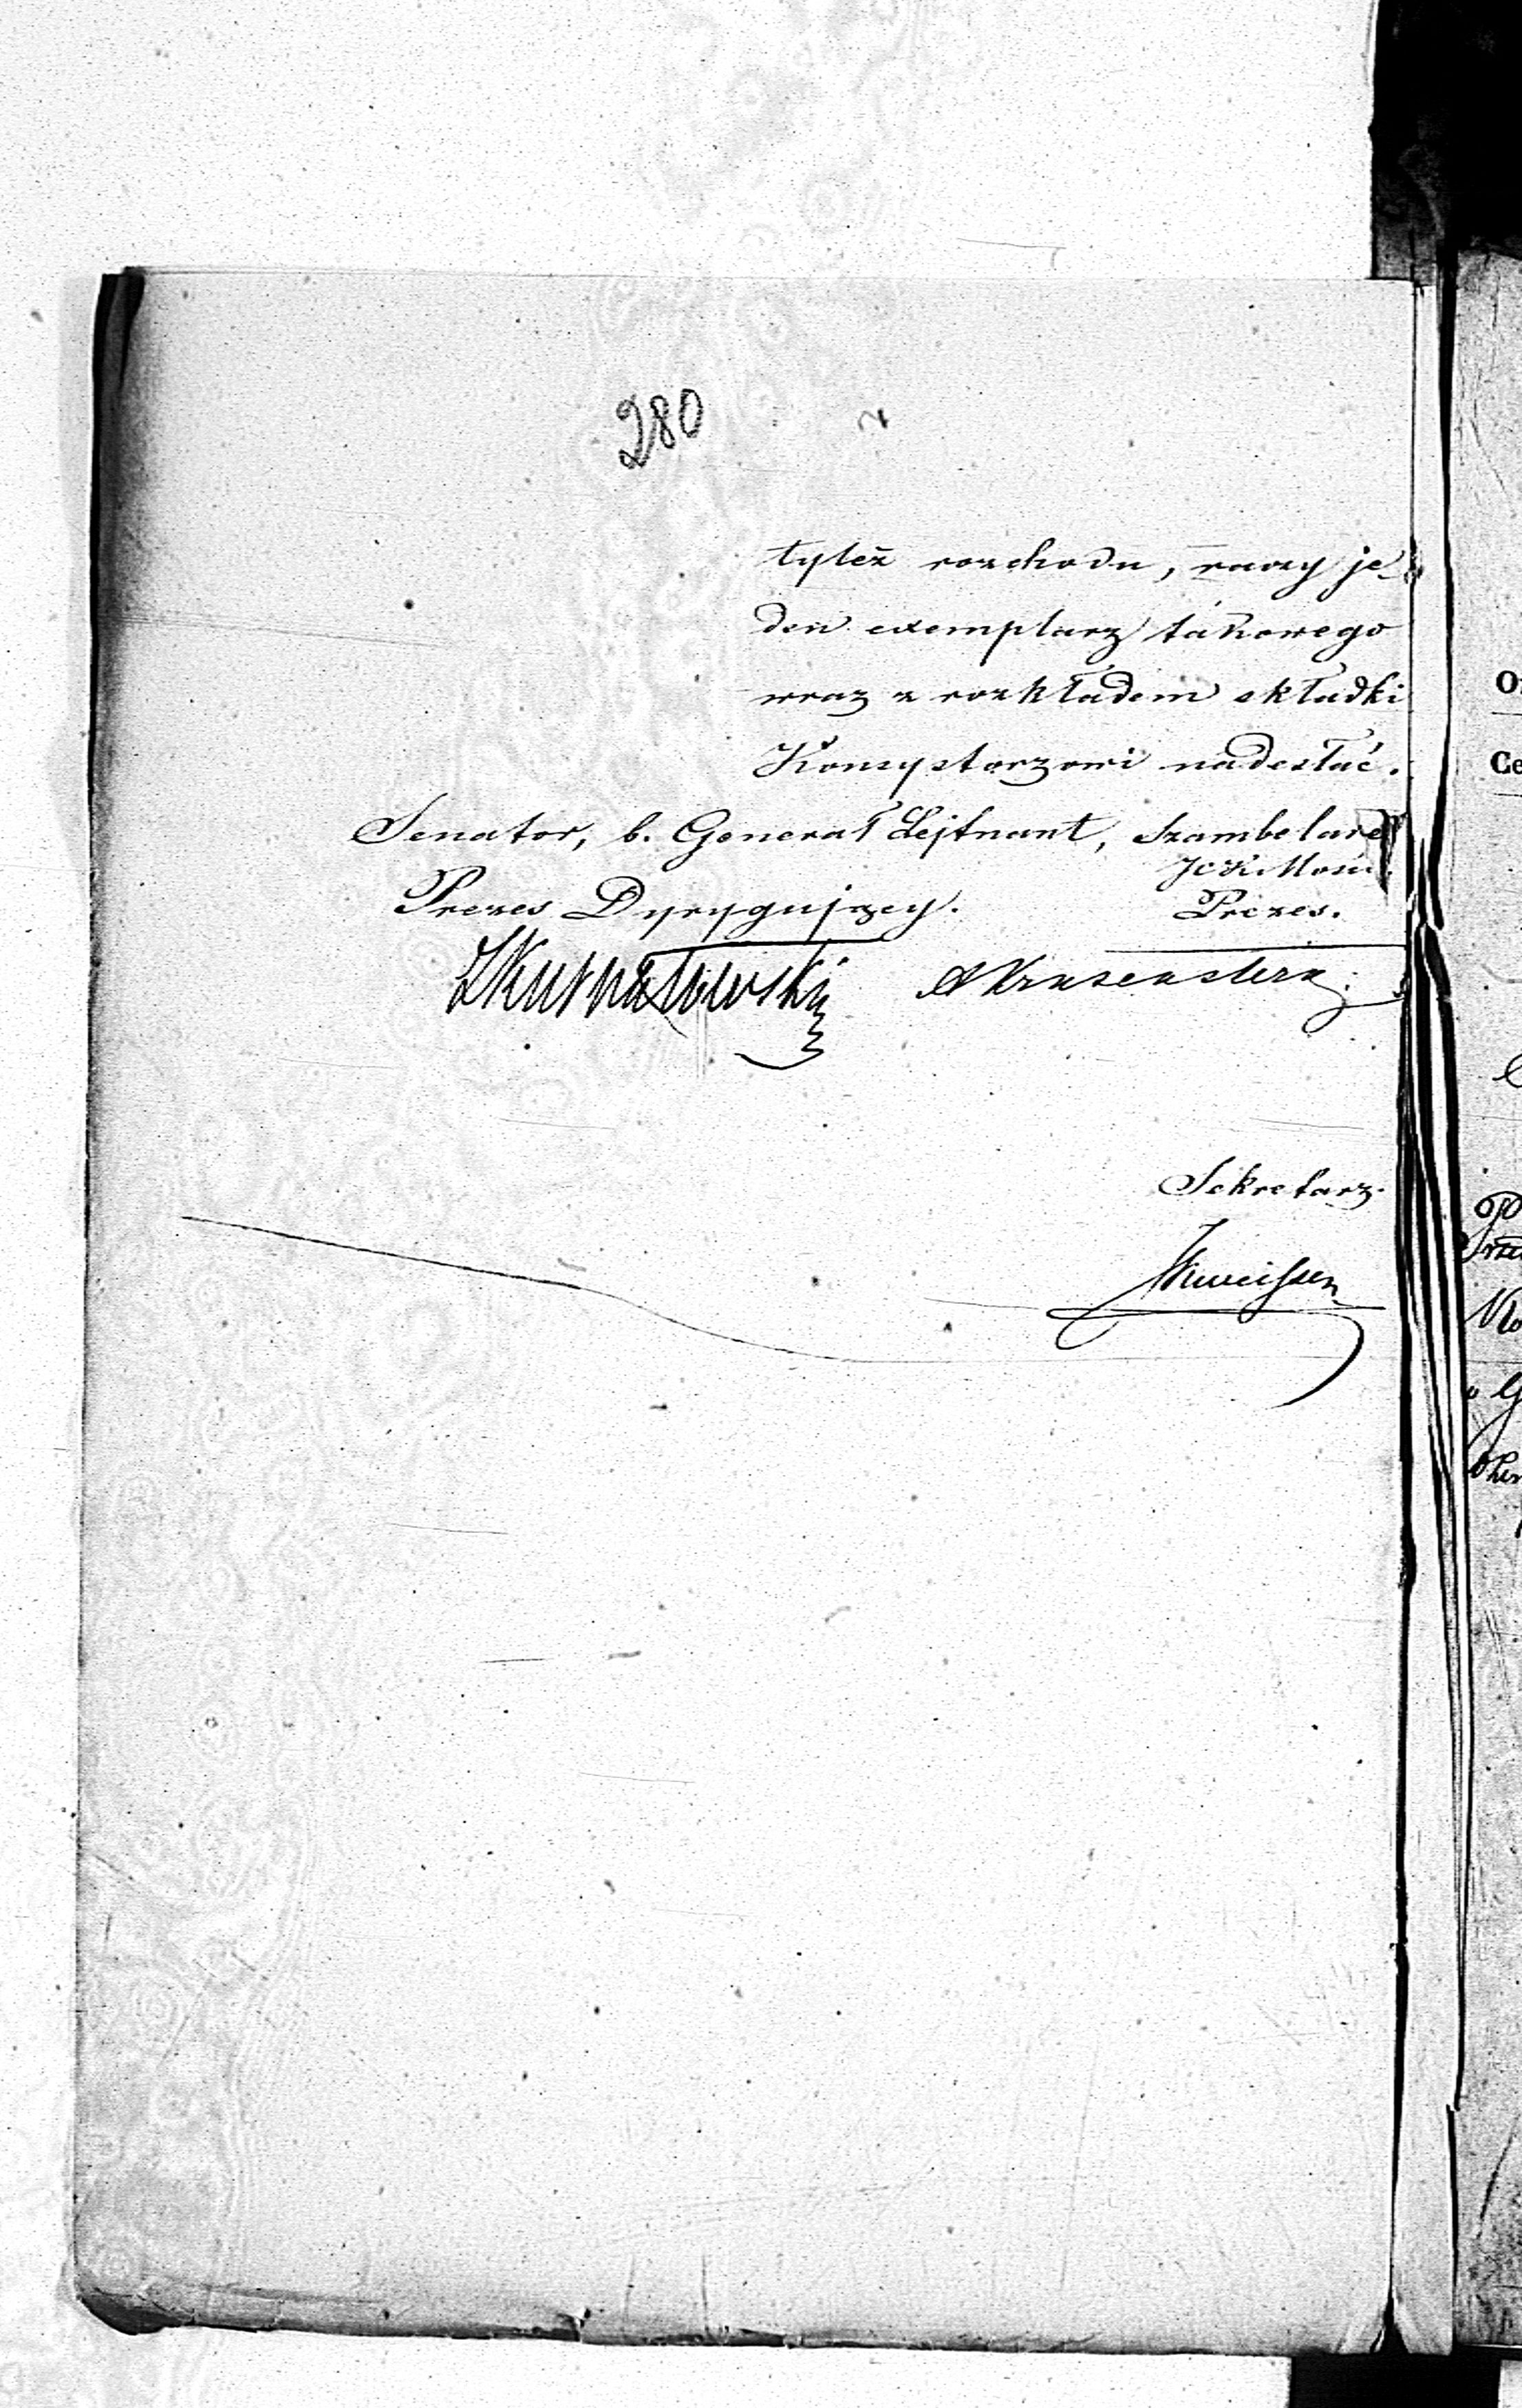 280
tyleż rozchodu, raczy je-
den exemplarz takowego
wraz z rozkładem składki
Konsystorzowi nadesłać.
Senator, b. Generał Lejtnant, Szambelan
J. C. K. Mości
Prezes Dyrygujący. Prezes.
Kurnatowski
Sekretarz.